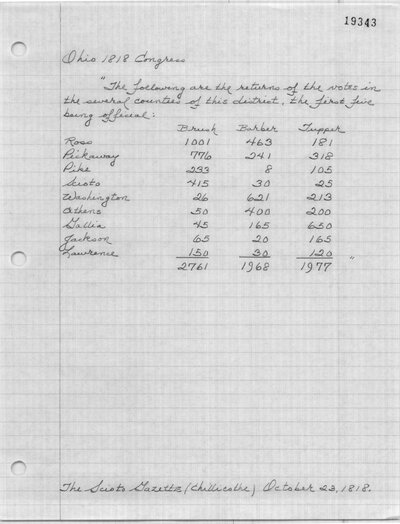 19343
Ohio 1818 Congress
"The following are the returns of the votes in
the several counties of this district, the first five
being official:
Brush Barber Tupper
Ross 1001 463 181
Pickaway 776 241 318
Pike 233 8 105
Scioto 415 30 25
Washington 26 621 213
Athens 50 400 200
Gallia 45 165 650
Jackson 65 20 165
Lawrence 150 30 120
2761 1968 1977 "
The Scioto Gazette (Chillicothe) October 23, 1818.